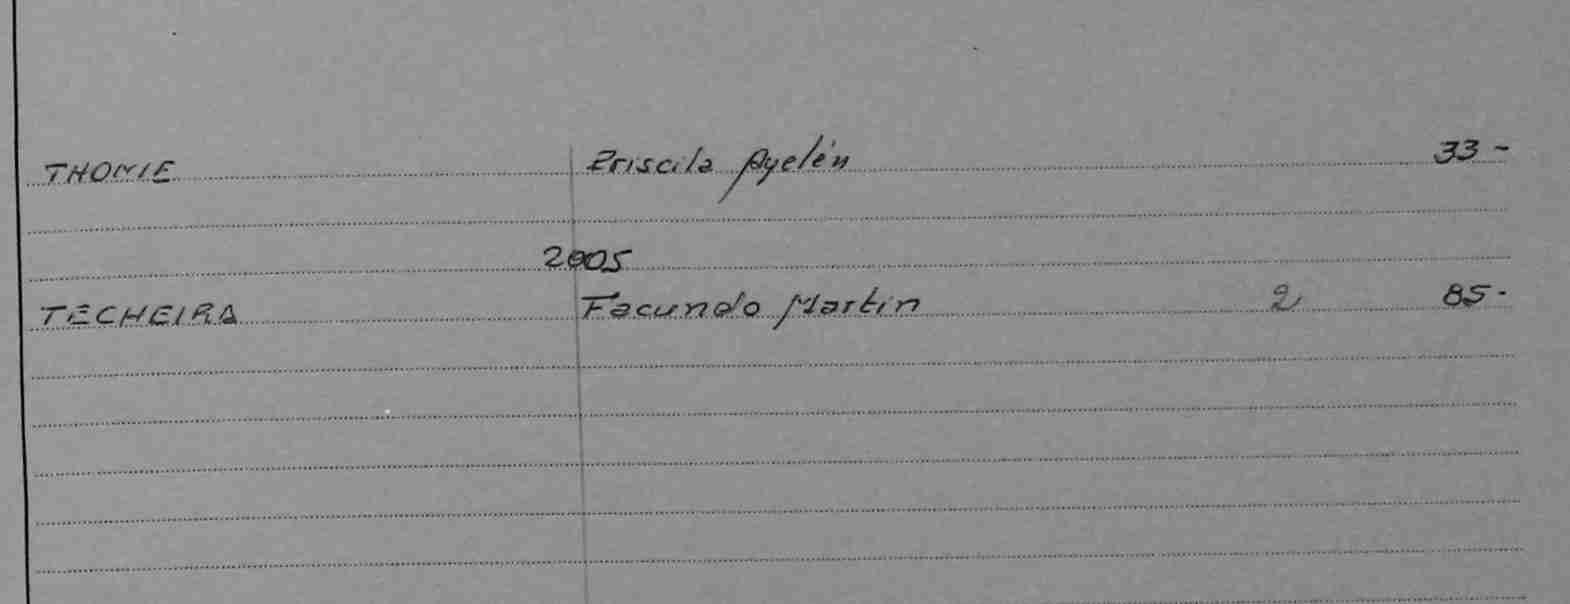 THOMIE Priscila Ayelén 33-
2005
TECHEIRA Facundo Martin 2 85-